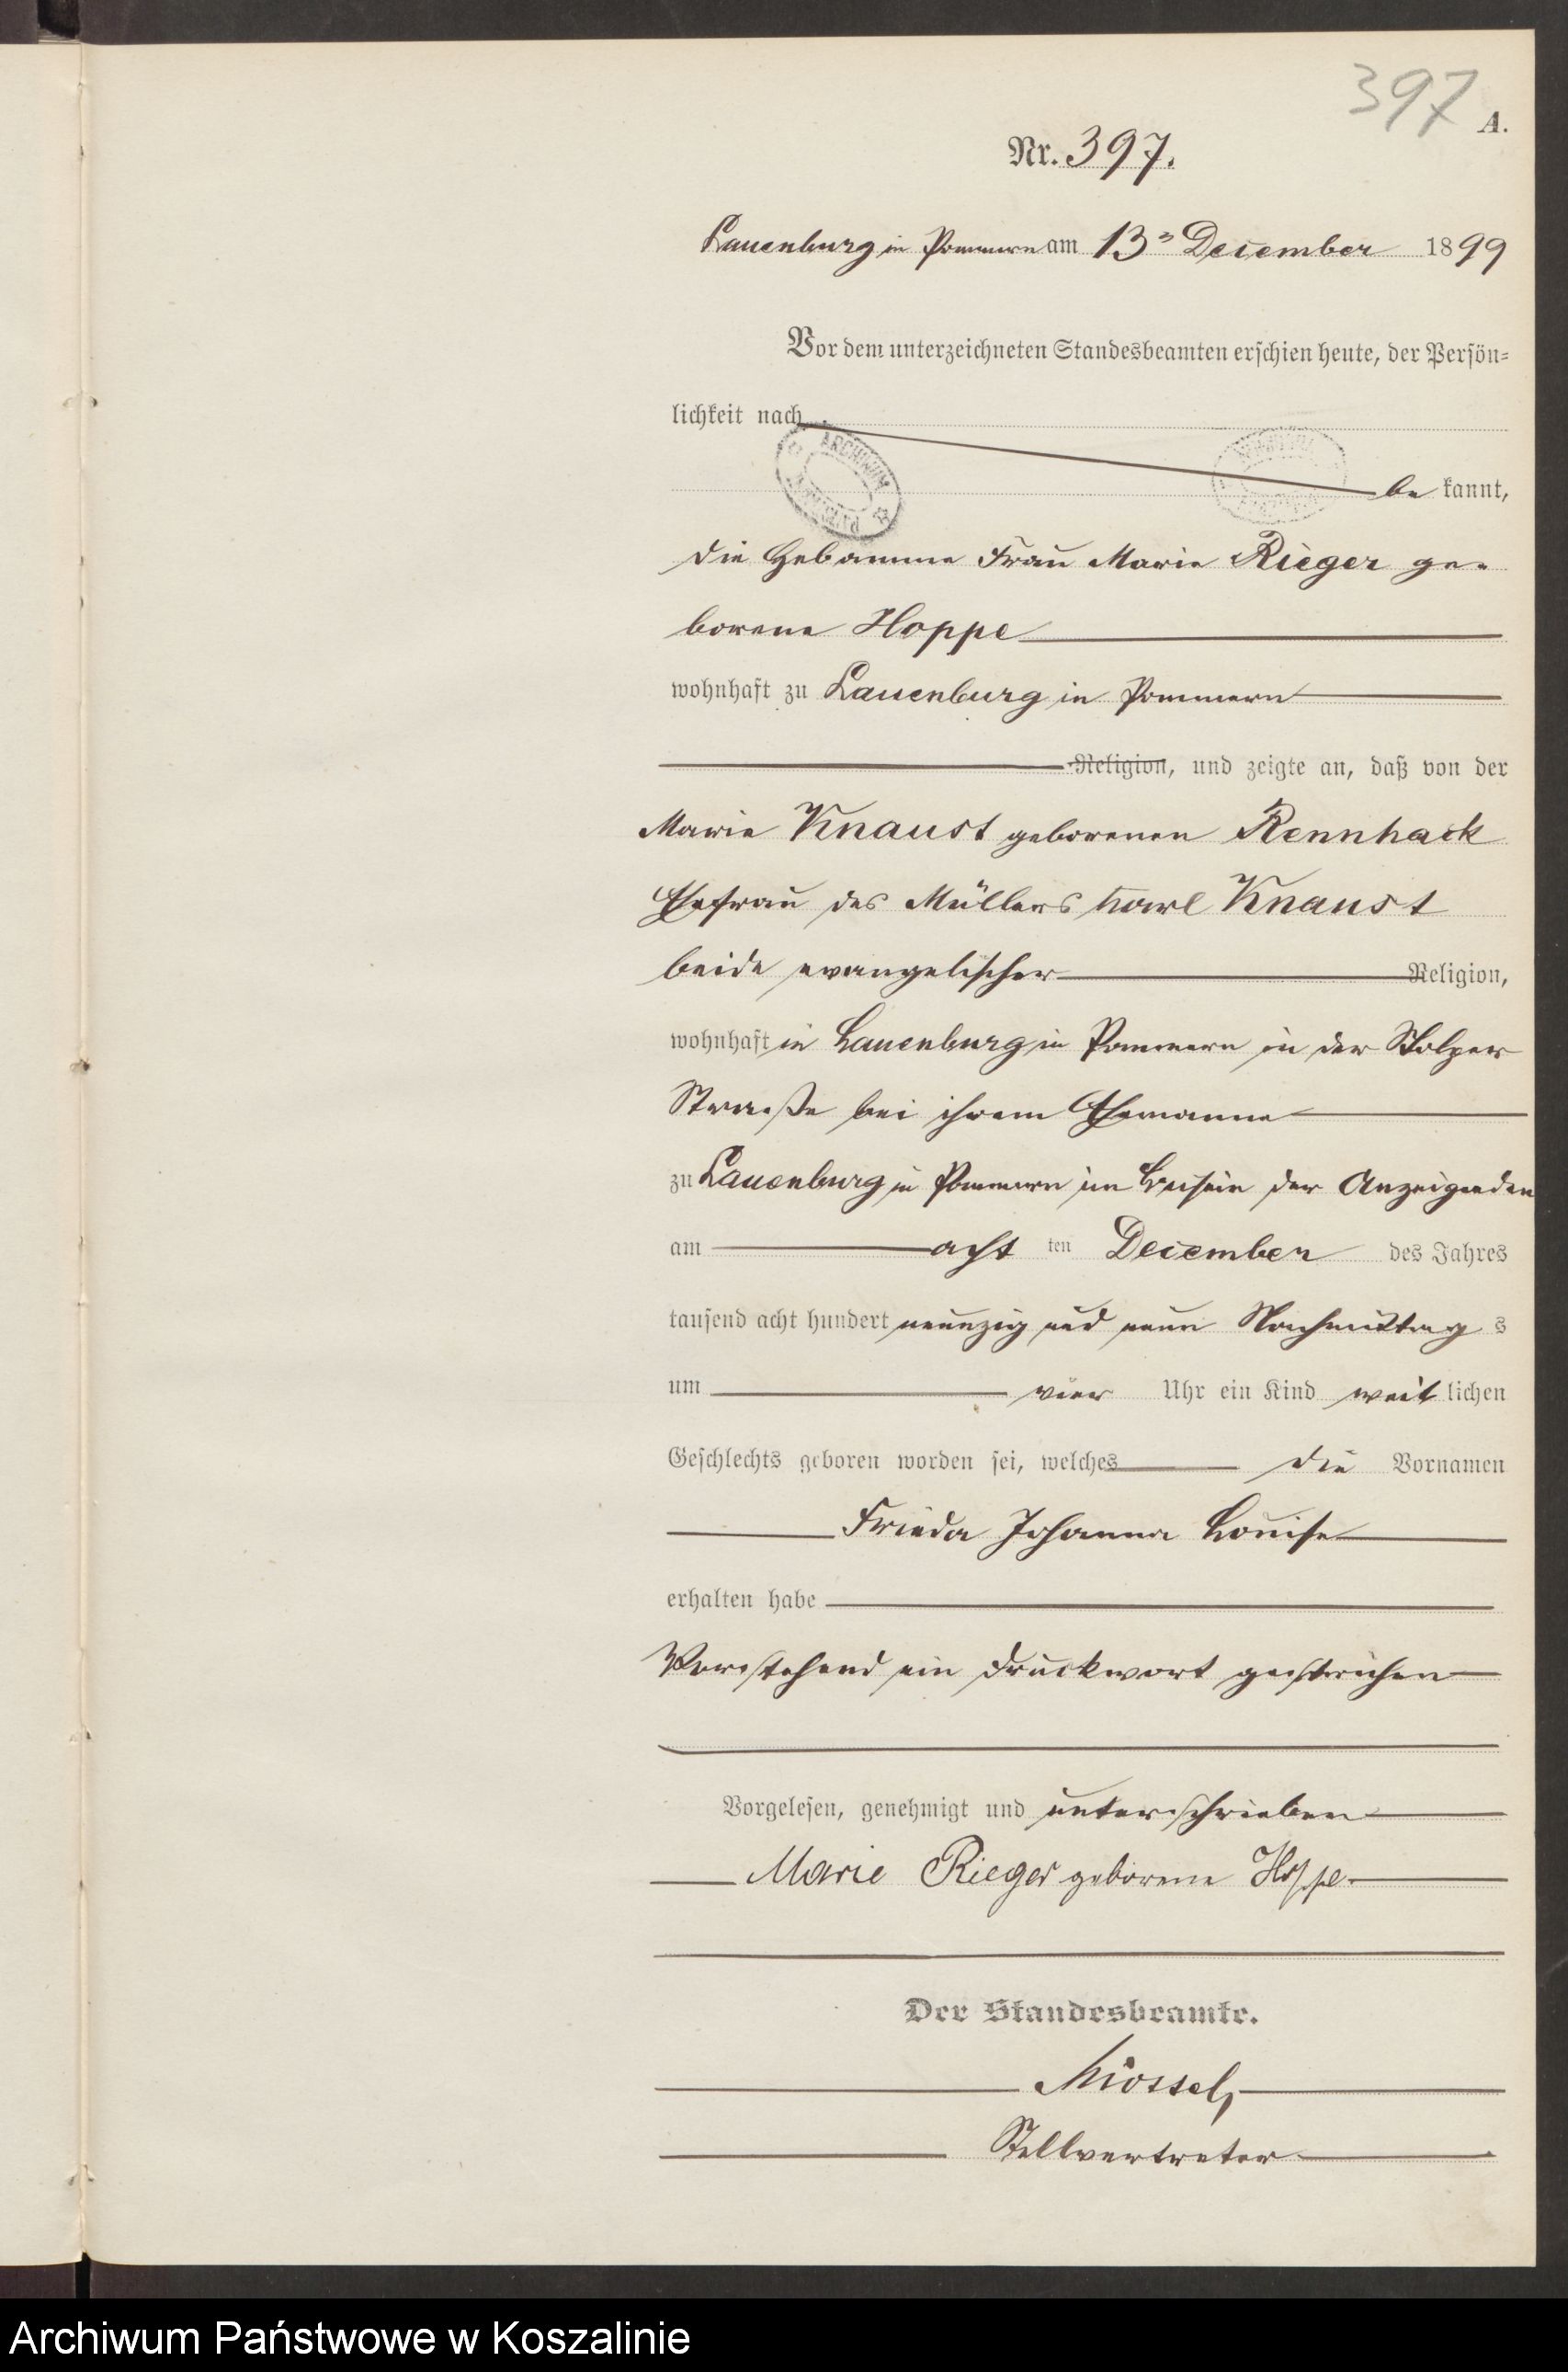 397
A.
Nr. 397.
Lauenburg in Pommern am 13ⁿ December 1899
Vor dem unterzeichneten Standesbeamten erschien heute, der Persön=
lichkeit nach
ARCHIWUM
be kannt,
die Hebamme Frau Marie Rieger ge-
borene Hoppe
wohnhaft zu Lauenburg in Pommern
Religion, und zeigte an, daß von der
Marie Knaust geborenen Rennhack
Ehefrau des Müllers Karl Knaust
beide evangelischer Religion,
wohnhaft in Lauenburg in Pommern in der Stolper
Straße bei ihrem Ehemanne
zu Lauenburg in Pommern im Beisein der Anzeigenden
am acht ten December des Jahres
tausend acht hundert neunzig und neun Nachmittag s
um vier Uhr ein Kind weib lichen
Geschlechts geboren worden sei, welches die Vornamen
Frieda Johanna Louise
erhalten habe
Vorstehend ein Druckwort gestrichen
Vorgelesen, genehmigt und unterschrieben
Marie Rieger geborene Hoppe
Der Standesbeamte.
Stellvertreter
Archiwum Państwowe w Koszalinie